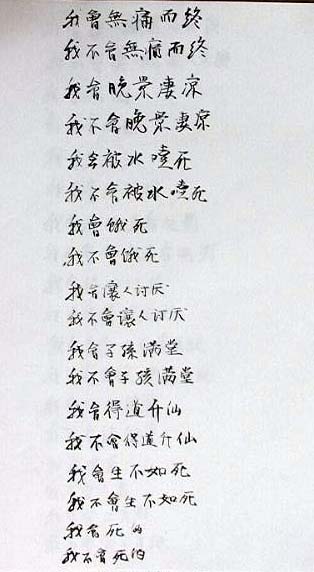 我會無痛而終
我不會無痛而終
我會晚景凄凉
我不會晚景凄凉
我会被水噎死
我不會被水噎死
我會餓死
我不會餓死
我會讓人讨厌
我不會讓人讨厌
我會子孫滿堂
我不會子孫滿堂
我會得道升仙
我不會得道升仙
我會生不如死
我不會生不如死
我會死的
我不會死的